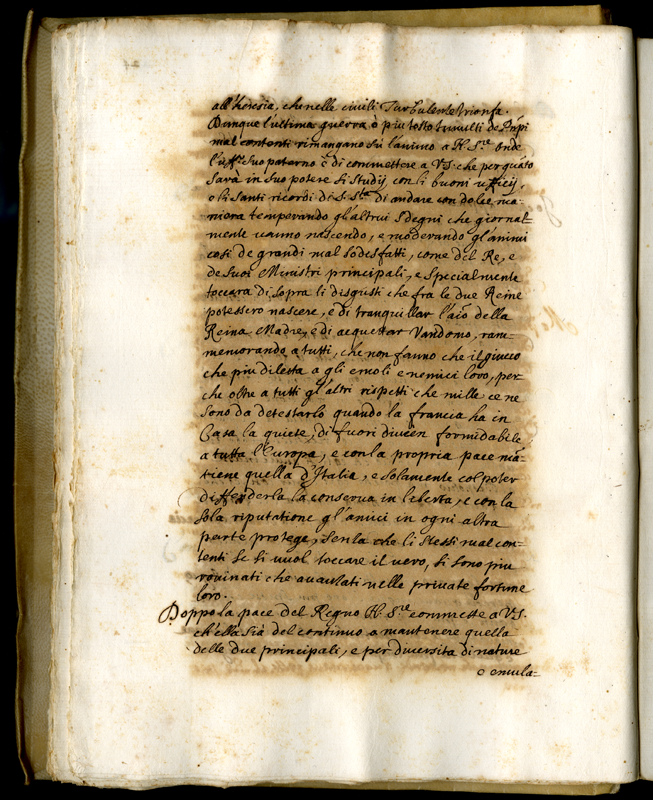 all'heresia, che nelle civili Turbulente trionfa.
Dunque l'ultima guerra ò piu tosto tumulti de Pñpi
mal contenti rimangano sù l'animo a N. S.re Onde
l'uff.o suo paterno è di commettere a V.S. che per quãto
sarà in suo potere si studij con li buoni ufficij,
e li santi ricordi di S. S.tà di andare con dolce ma-
niera temperando gl'altrui sdegni che giornal-
mente vanno nascendo, e moderando gl'animi
cosi de grandi mal sodisfatti, come del Re, e
de suoi Ministri principali, e specialmente
toccara di sopra li disgusti che fra le due Reine
potessero nascere, e di tranquillar l'aîo della
Reina Madre, e di acquettar Vandomo, ram-
memorando a tutti, che non fanno che il giuoco
che piu diletta a gli emoli e nemici loro, per-
che oltre a tutti gl'altri rispetti che mille ce ne
sono da detestarlo quando la francia ha in
Casa la quiete, di fuori divien formidabile
a tutta l'Europa, e con la propria pace mã-
tiene quella d'Italia, e solamente col poter
diffenderla la conserva in libertà, e con la
sola riputatione gl'amici in ogni altra
parte protege, senza che li stessi mal con-
tenti se si vuol toccare il vero, si sono piu
rovinati che avanzati nelle private fortune
loro.
Doppo la pace del Regno N. S.re commette a V.S.
ch'ella sia del continuo a mantenere quella
delle due principali, e per diversita di nature
e emula-